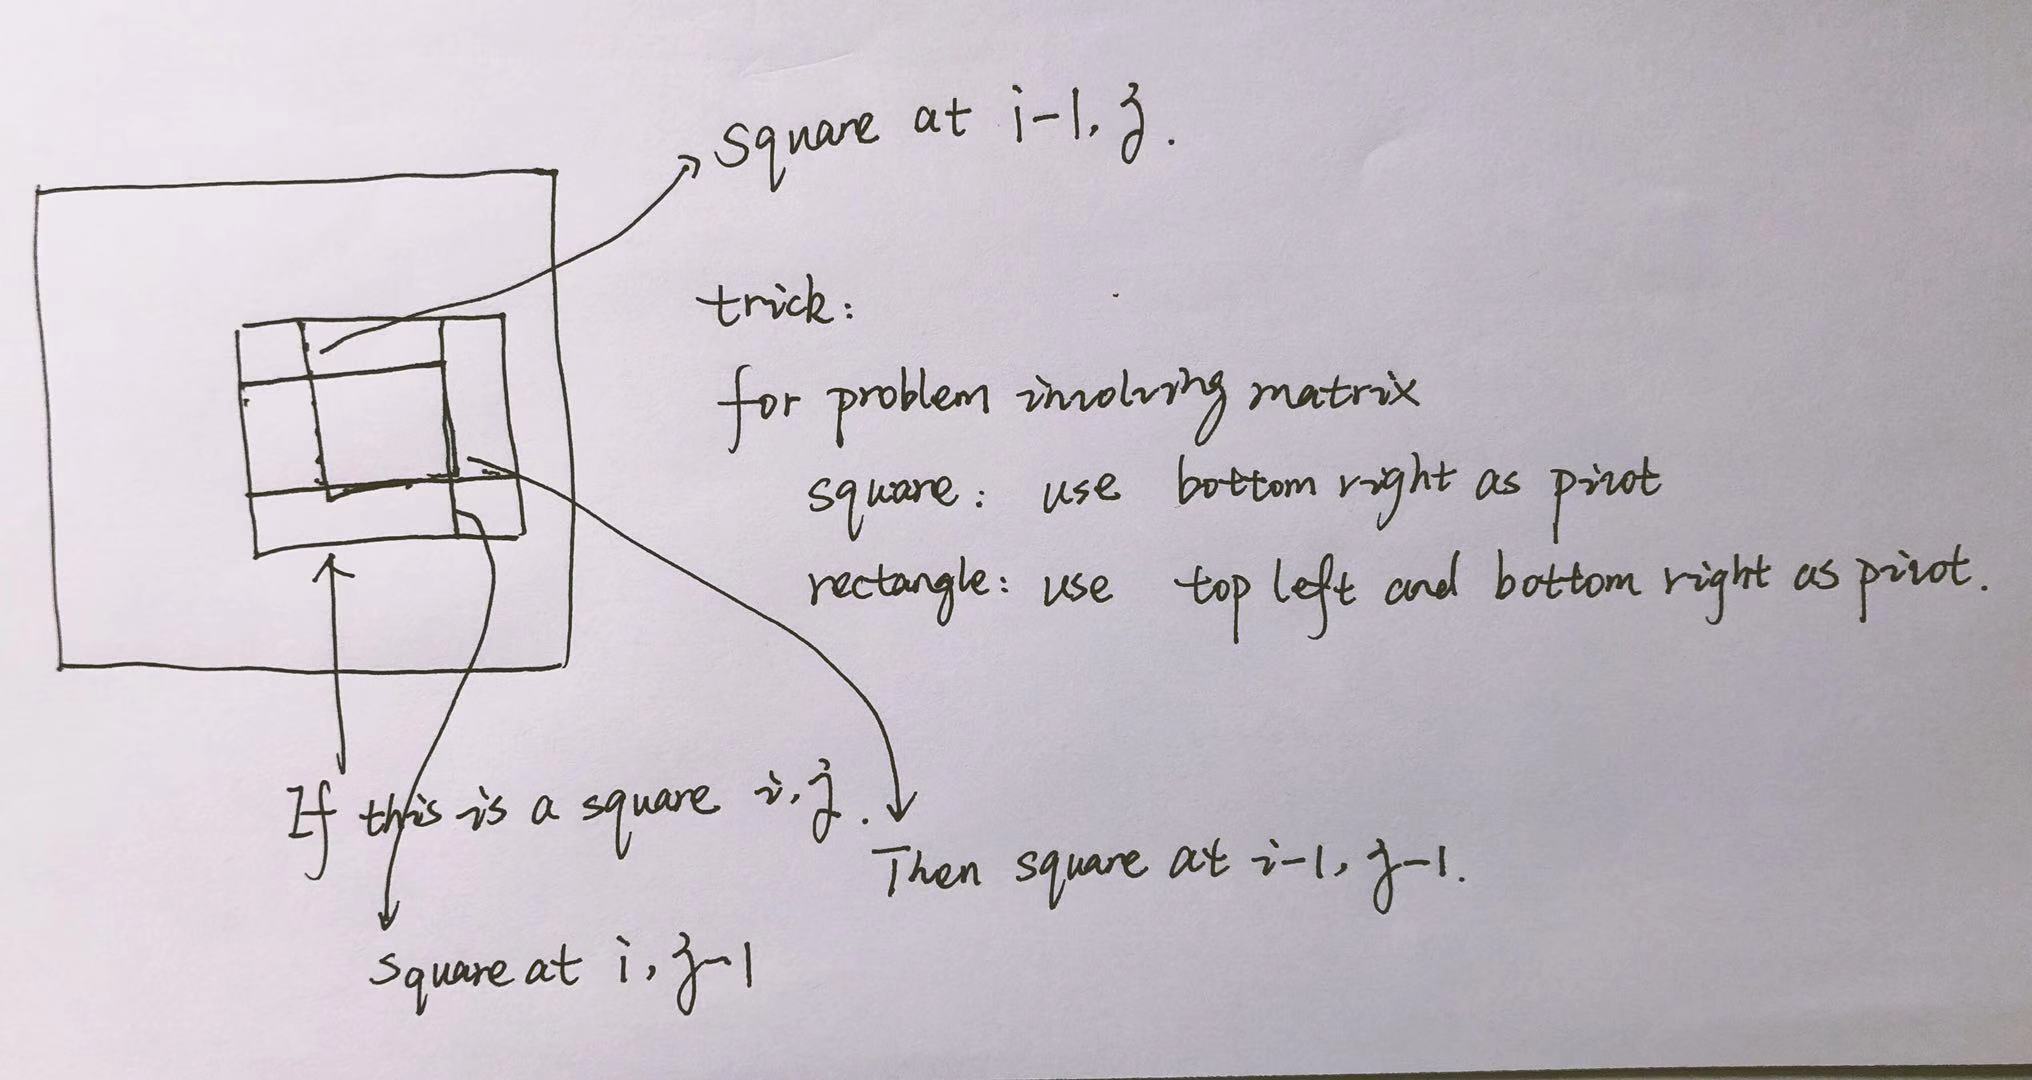 square at i-1, j.
trick:
for problem involving matrix
square: use bottom right as pivot
rectangle: use top left and bottom right as pivot.
If this is a square i, j.
Then square at i-1, j-1.
square at i, j-1